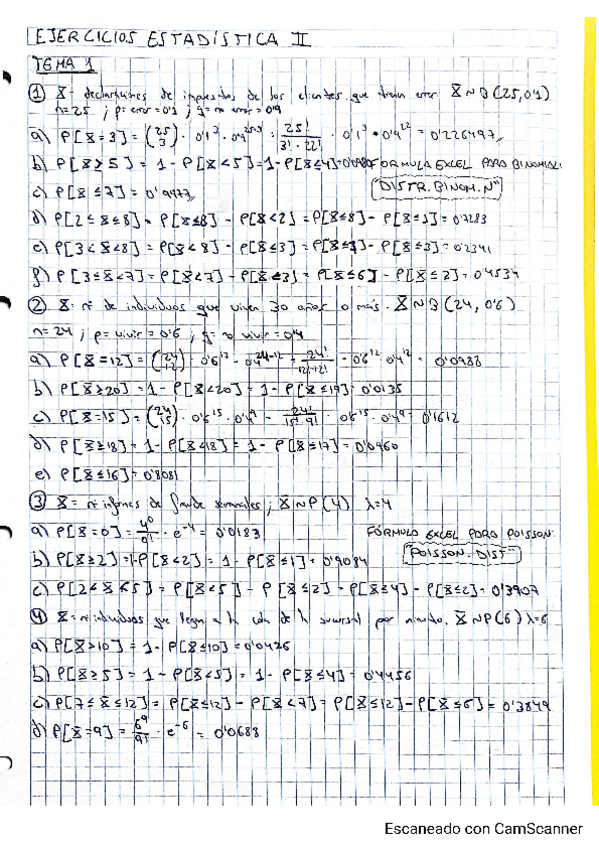 EJERCICIOS ESTADÍSTICA II
TEMA 1
① X = declaraciones de impuestos de los clientes que traen error X~B(25,0'1)
n=25 ; p= error = 0'1 ; q= no error = 0'9
a) P[X=3] = (25 3) · 0'1³ · 0'9²⁵⁻³ = 25!/3!·22! · 0'1³ · 0'9²² = 0'226497
b) P[X≥5] = 1 - P[X<5] = 1 - P[X≤4] = FÓRMULA EXCEL PARA BINOMIAL:
c) P[X≤7] = 0'9977 "DISTR.BINOM.N"
d) P[2≤X≤8] = P[X≤8] - P[X<2] = P[X≤8] - P[X≤1] = 0'7283
e) P[3<X<8] = P[X<8] - P[X≤3] = P[X≤7] - P[X≤3] = 0'2341
f) P[3≤X<7] = P[X<7] - P[X<3] = P[X≤6] - P[X≤2] = 0'4534
② X = nº de individuos que viven 30 años o más. X~B(24, 0'6)
n=24 ; p= vivir = 0'6 ; q= no vivir = 0'4
a) P[X=12] = (24 12) · 0'6¹² · 0'4²⁴⁻¹² = 24!/12!·12! · 0'6¹² · 0'4¹² = 0'0988
b) P[X≥20] = 1 - P[X<20] = 1 - P[X≤19] = 0'0135
c) P[X=15] = (24 15) · 0'6¹⁵ · 0'4⁹ = 24!/15!·9! · 0'6¹⁵ · 0'4⁹ = 0'1612
d) P[X≥18] = 1 - P[X<18] = 1 - P[X≤17] = 0'0960
e) P[X≤16] = 0'8081
③ X = nº informes de fraude semanales ; X~P(4) λ=4
a) P[X=0] = 4⁰/0! · e⁻⁴ = 0'0183 FÓRMULA EXCEL PARA POISSON:
b) P[X≥2] = 1-P[X<2] = 1 - P[X≤1] = 0'9084 "POISSON.DIST"
c) P[2<X<5] = P[X<5] - P[X≤2] = P[X≤4] - P[X≤2] = 0'3907
④ X = nº individuos que llegan a la cola de la sucursal por minuto. X~P(6) λ=6
a) P[X>10] = 1 - P[X≤10] = 0'0426
b) P[X≥5] = 1 - P[X<5] = 1 - P[X≤4] = 0'4456
c) P[7≤X≤12] = P[X≤12] - P[X<7] = P[X≤12] - P[X≤6] = 0'3849
d) P[X=9] = 6⁹/9! · e⁻⁶ = 0'0688
Escaneado con CamScanner